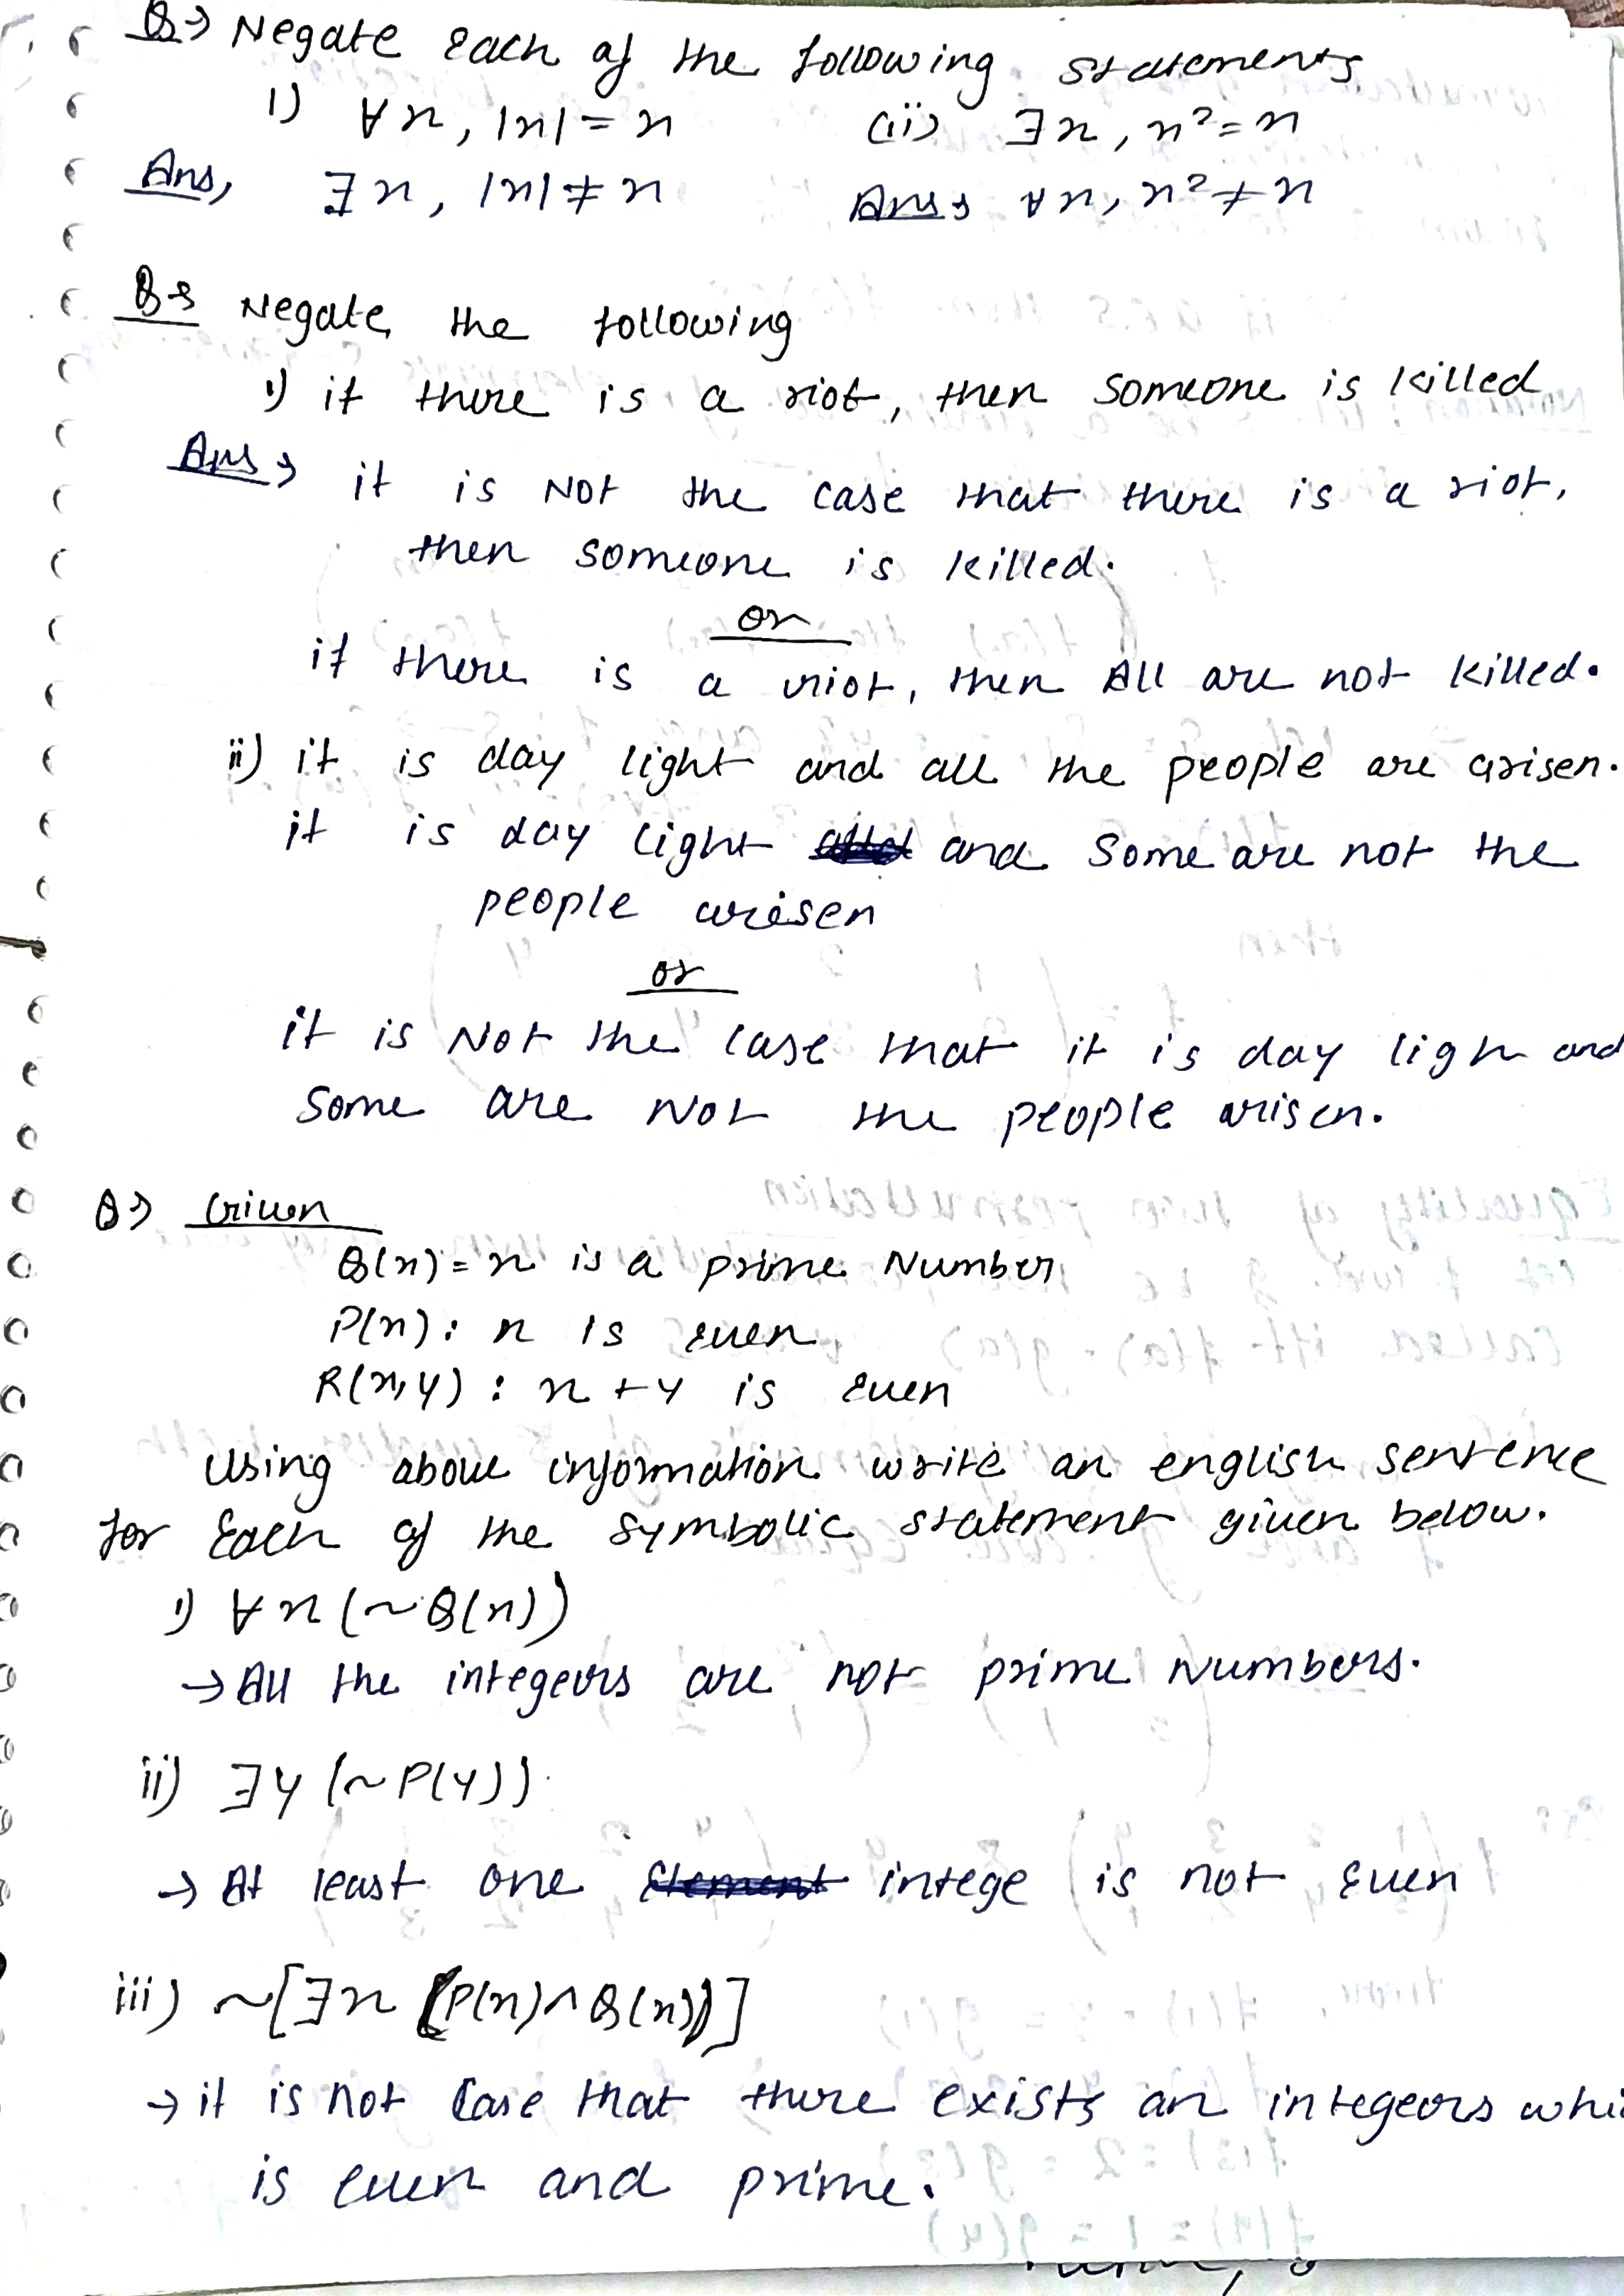 Q→ Negate Each of the following statements
i) ∀x, |x| = x (ii) ∃x, x² = x
Ans, ∃x, |x| ≠ x Ans→ ∀x, x² ≠ x
Q→ Negate the following
i) if there is a riot, then someone is killed
Ans→ it is Not the case that there is a riot,
then someone is killed.
or
if there is a riot, then All are not killed.
ii) it is day light and all the people are arisen.
it is day light and some are not the
people arisen
or
it is Not the case that it is day ligh and
some are Not the people arisen.
Q→ Given
Q(x) = x is a prime Number
P(x) : x is even
R(x,y) : x + y is Even
Using above information write an english sentence
for Each of the symbolic statement given below.
i) ∀x (~Q(x))
→ All the integers are not prime Numbers.
ii) ∃y (~P(y)).
→ At least one intege is not Even
iii) ~[∃x (P(x) ∧ Q(x))]
→ it is not Case that there exists an integeors whi
is even and prime.